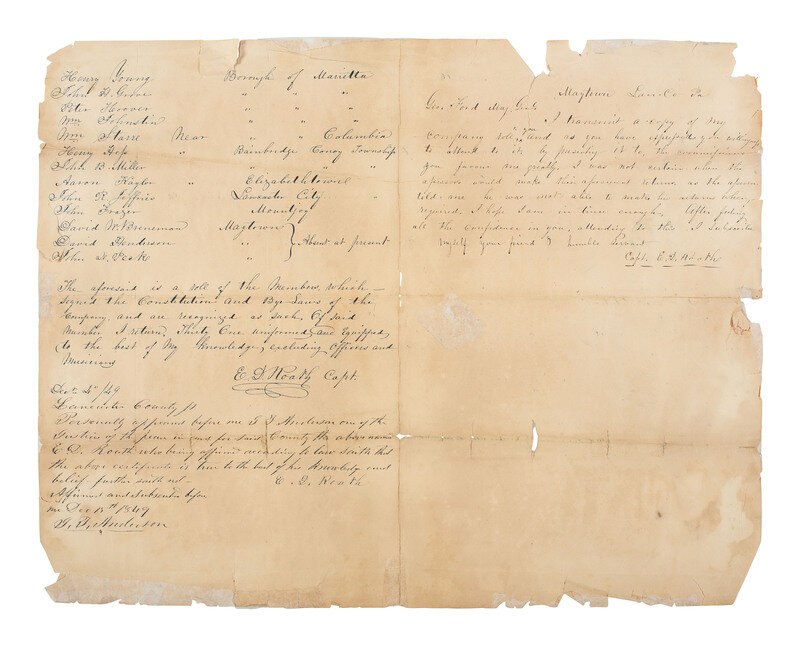 Henry Young Borough of Marietta
John G. Grove " " "
Peter Hoover " " "
Wm Johnstin " " "
Wm Starre Near " " Columbia
Henry " Bainbridge Conoy Township
John B. Miller " " "
Aaron Kaylor " Elizabethtown
John R. Jeffries Lancaster City
John Frazer Mountjoy
David W. Breneman Maytown
David Henderson " Absent at present
John N. "
The aforesaid is a roll of the Members which
signed the Constitution and Bye Laws of the
Company, and are recognized as such. Of said
Number I return, Thirty One uniformed, and Equipped,
to the best of My Knowledge, excluding Officers and
Musicians
E. D. Roath Capt.
Dec 4th /49
Lancaster County ss
Personally appeared before me one of the
Justices of the peace in and for said County the above named
E. D. Roath who being affirmed according to law saith that
the above certificate is true to the best of his knowledge and
belief further saith not
E. D. Roath
Affirmed and subscribed before
me Dec 1849
Anderson
Maytown Lanc. Co Pa
Geo. Ford May. Genl.
I transmit a copy of My
company roll to you and as you have offered your
to attend to it, by presenting it to, the commissioners
you favour me greatly. I was not certain when the
assessors would make their assessment returns, as the assessor
told me he was not able to make his returns when
required. I hope I am in time enough, after
all the confidence in you, attending to this I subscribe
Myself your friend & humble Servant
Capt. E. D. Roath